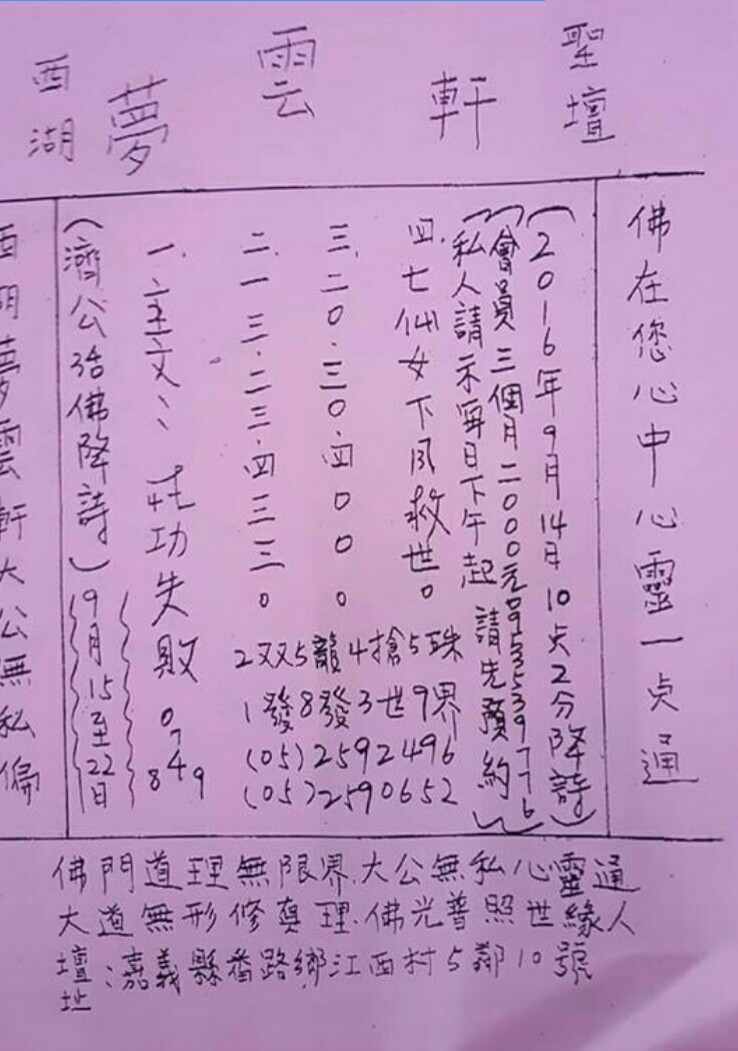 聖壇
雲軒
夢
西湖
佛在您心中心靈一点通
(2016年9月14日10点2分降詩)
(會員三個月2000元0935397776)
(私人請示每日下午起請先預約)
四.七仙女下凡救世。
三.二0.三0.四000
二.一三.二三.四三三。
2双双5龍4搶5珠
1發8發3世9界
(05)2592496
(05)2590652
一.文文㇀功失敗
0
7
849
(濟公活佛降詩)
9月15至22日
西湖夢雲軒大公無私偏
佛門道理無限界.大公無私心靈通
大道無形修真理.佛光普照世緣人
壇址:嘉義縣番路鄉江西村5鄰10號